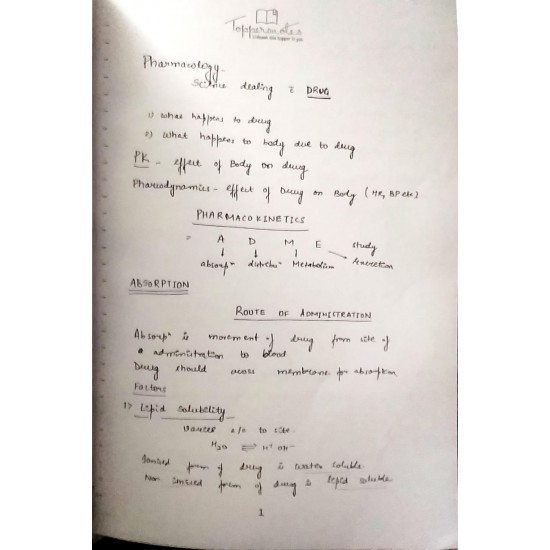 Toppersnotes
Unleash the topper in you
Pharmacology -
Science dealing c̄ DRUG
1) what happens to drug
2) What happens to body due to drug
PK - effect of Body on drug
Pharmcodynamics - effect of Drug on Body ( HR, BP etc)
PHARMACOKINETICS
A D M E study
absorpⁿ distribuⁿ Metabolism Excretion
ABSORPTION
ROUTE OF ADMINISTRATION
Absorpⁿ is movement of drug from site of
administration to blood
Drug should cross membrane for absorption.
Factors
1) Lipid solubility -
varies a/c to site.
H₂O ⇌ H⁺ OH⁻
Ionised form of drug is water soluble.
Non ionised form of drug is lipid soluble.
1